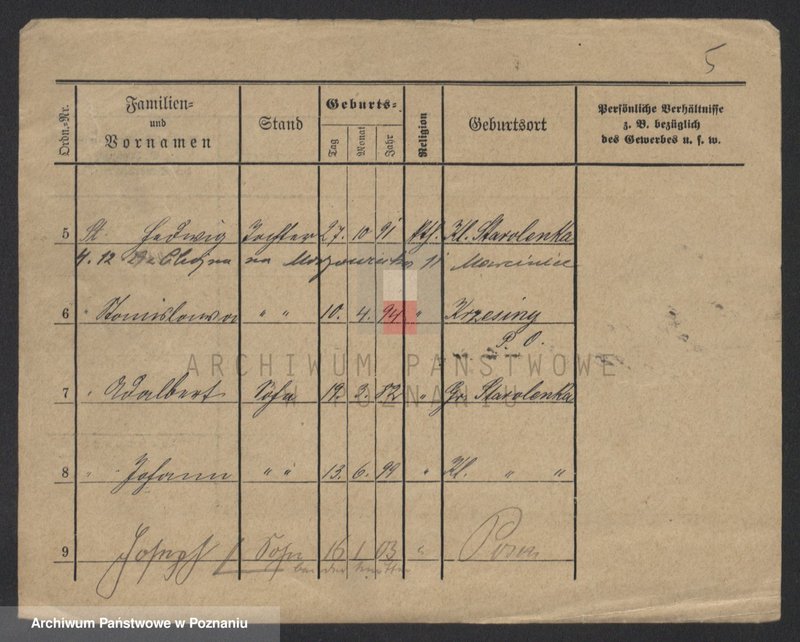 5
Ordn.-Nr.
Familien-
und
Vornamen
Stand
Geburts-
Tag
Monat
Jahr
Religion
Geburtsort
Persönliche Verhältnisse
z. B. bezüglich
des Gewerbes u. s. w.
5 Hedwig Tochter 27. 10 91 kth. Kl. Starolenka
4. 12
6 " Stanislawa " " 10. 4. 94 " Krzesiny
P. O.
ARCHIWUM PAŃSTWOWE
W POZNANIU
7 " Adalbert Sohn 19. 2. 82 " Gr. Starolenka
8 " Johann " " 13. 6. 99 " Kl. " "
9 Joseph Sohn 16 1 03 " Posen
Archiwum Państwowe w Poznaniu